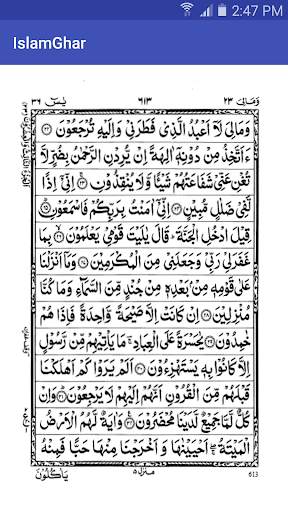 2:47 PM
IslamGhar
وَمَالِیَ ٢٣
٦١٣
يٰسٓ ٣٦
وَمَالِیَ لَاۤ اَعْبُدُ الَّذِیْ فَطَرَنِیْ وَاِلَیْهِ تُرْجَعُوْنَ ﴿٢٢﴾
ءَاَتَّخِذُ مِنْ دُوْنِهٖۤ اٰلِهَةً اِنْ یُّرِدْنِ الرَّحْمٰنُ بِضُرٍّ لَّا
تُغْنِ عَنِّیْ شَفَاعَتُهُمْ شَیْـًٔا وَّلَا یُنْقِذُوْنِ ﴿٢٣﴾ اِنِّیْۤ اِذًا
لَّفِیْ ضَلٰلٍ مُّبِیْنٍ ﴿٢٤﴾ اِنِّیْۤ اٰمَنْتُ بِرَبِّكُمْ فَاسْمَعُوْنِ ﴿٢٥﴾
قِیْلَ ادْخُلِ الْجَنَّةَ ؕ قَالَ یٰلَیْتَ قَوْمِیْ یَعْلَمُوْنَ ﴿٢٦﴾ بِمَا
غَفَرَلِیْ رَبِّیْ وَجَعَلَنِیْ مِنَ الْمُكْرَمِیْنَ ﴿٢٧﴾ وَمَاۤ اَنْزَلْنَا
عَلٰی قَوْمِهٖ مِنْۢ بَعْدِهٖ مِنْ جُنْدٍ مِّنَ السَّمَآءِ وَمَا كُنَّا
مُنْزِلِیْنَ ﴿٢٨﴾ اِنْ كَانَتْ اِلَّا صَیْحَةً وَّاحِدَةً فَاِذَا هُمْ
خٰمِدُوْنَ ﴿٢٩﴾ یٰحَسْرَةً عَلَی الْعِبَادِ ۚ مَا یَاْتِیْهِمْ مِّنْ رَّسُوْلٍ
اِلَّا كَانُوْا بِهٖ یَسْتَهْزِءُوْنَ ﴿٣٠﴾ اَلَمْ یَرَوْا كَمْ اَهْلَكْنَا
قَبْلَهُمْ مِّنَ الْقُرُوْنِ اَنَّهُمْ اِلَیْهِمْ لَا یَرْجِعُوْنَ ﴿٣١﴾ وَاِنْ
كُلٌّ لَّمَّا جَمِیْعٌ لَّدَیْنَا مُحْضَرُوْنَ ﴿٣٢﴾ وَاٰیَةٌ لَّهُمُ الْاَرْضُ
الْمَیْتَةُ ۚ اَحْیَیْنٰهَا وَاَخْرَجْنَا مِنْهَا حَبًّا فَمِنْهُ
یَاْكُلُوْنَ
منزل ٥
613